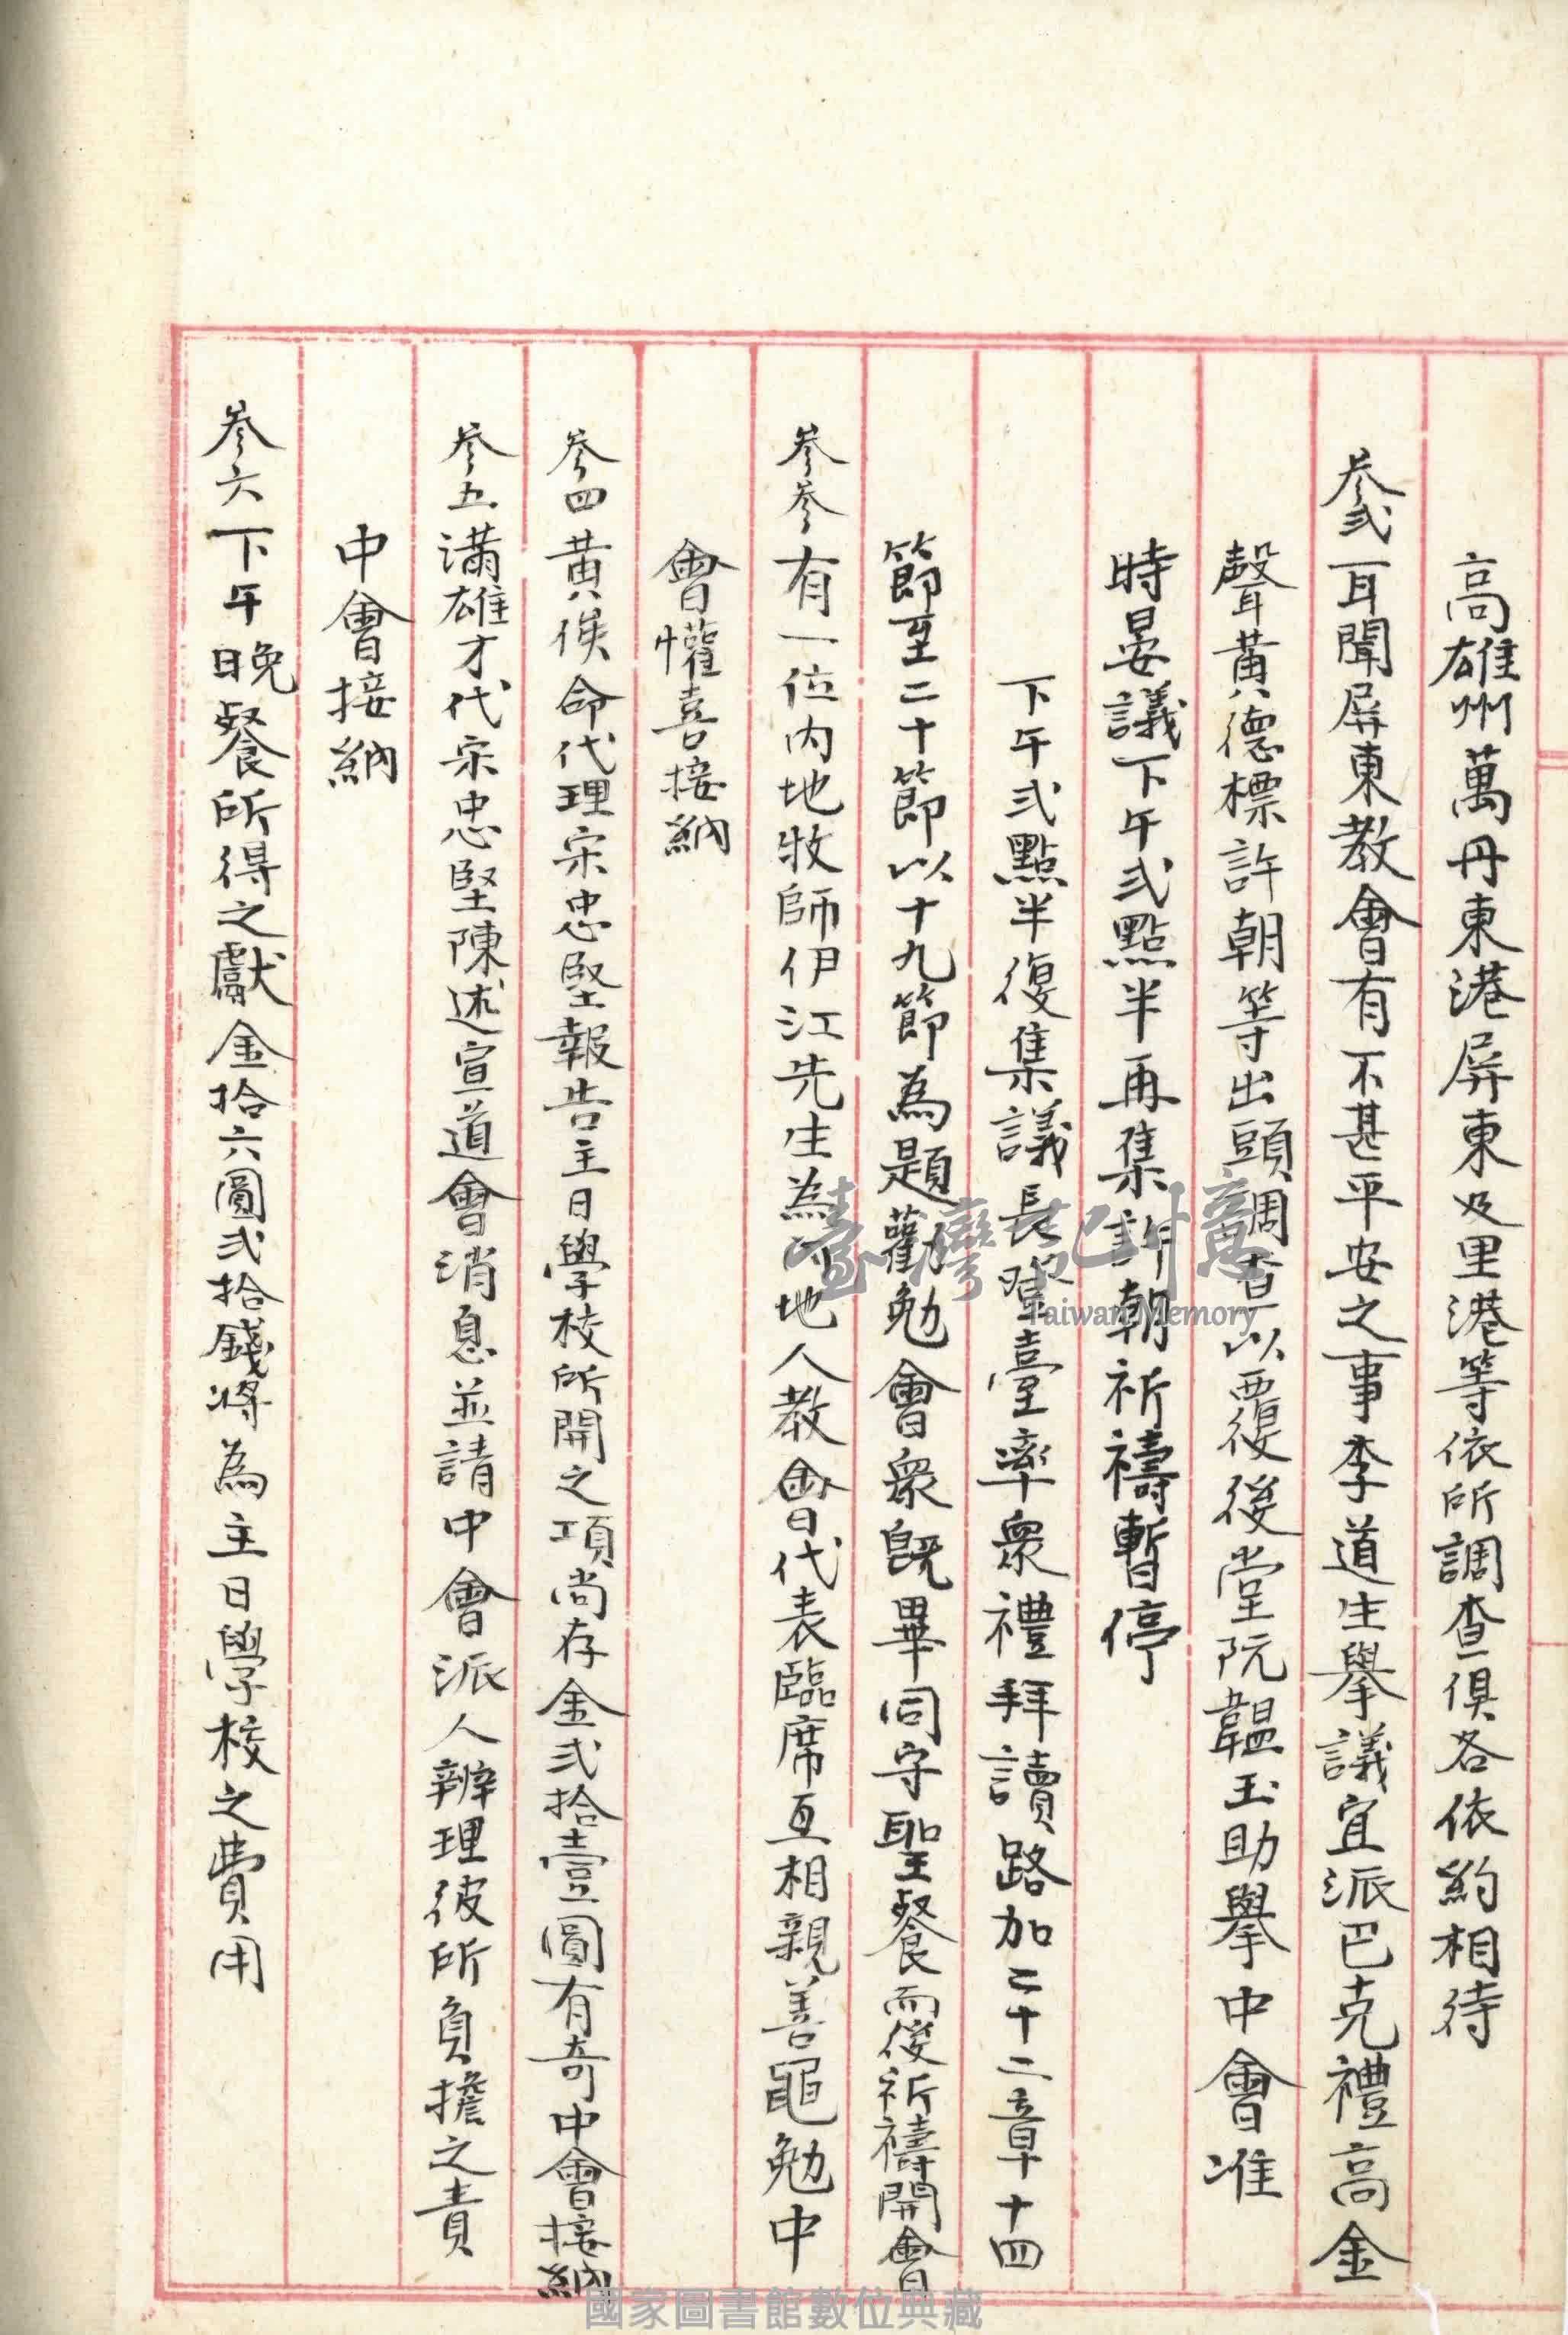 高雄州萬丹東港屏東及里港等依所調查俱各依約相待
參弎耳聞屏東教會有不甚平安之事李道生舉議宜派巴克禮高金
聲黃德標許朝等出頭調查以覆後堂阮韞玉助舉中會准
時晏議下午弍點半再集許朝祈禱暫停
下午弍點半復集議長登臺率衆禮拜讀路加二十二章十四
節至二十節以十九節為題勸勉會衆既畢同守聖餐而後祈禱開會
參參有一位內地牧師伊江先生為內地人教會代表臨席互相親善黽勉中
會懽喜接納
參四黃俟命代理宋忠堅報告主日學校所開之項尚存金弍拾壹圓有奇中會接納
參五滿雄才代宋忠堅陳述宣道會消息並請中會派人辦理彼所負擔之責
中會接納
參六下午晚餐所得之獻金拾六圓弍拾錢將為主日學校之費用
臺灣記憶
Taiwan Memory
國家圖書館數位典藏